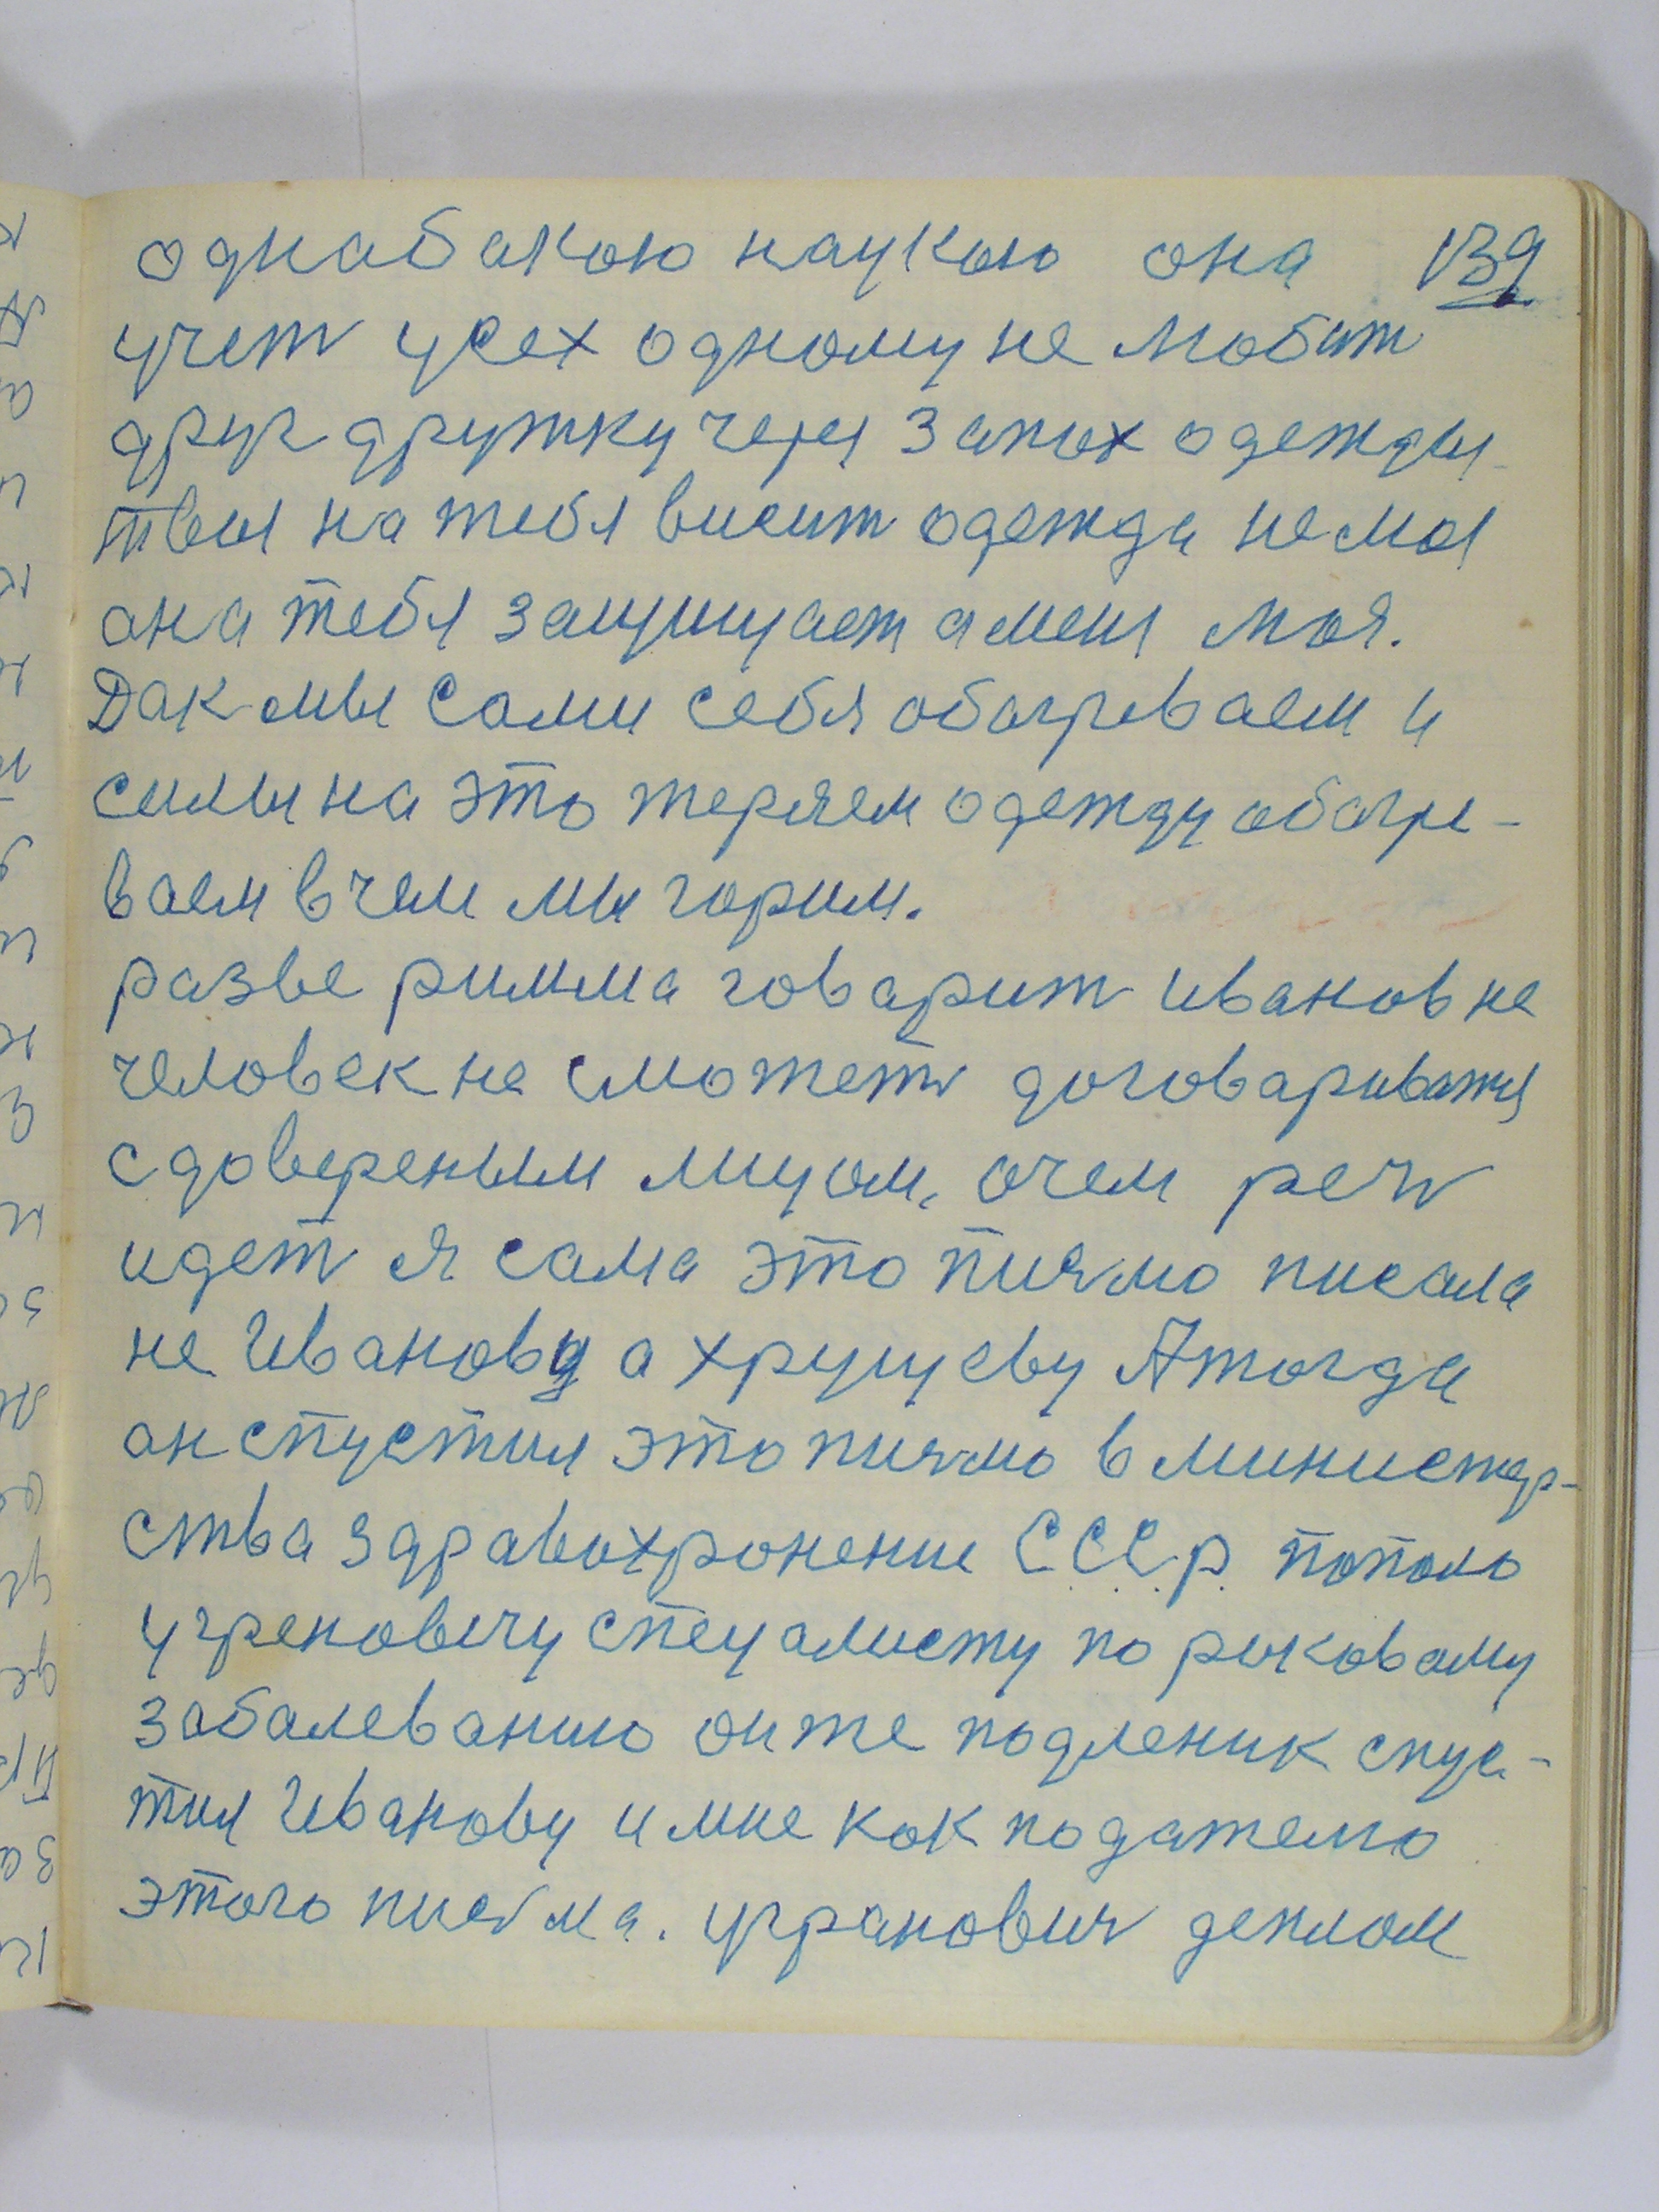 однабакою наукою она 139
учет усех одному не любит
друг дружку через запох одежды
твоя на тебя висит одежда не моя
она тебя защищает а меня моя.
Дак мы сами себя обогреваем и
силы на это теряем одежду обогре-
ваем в чем мы горим.
разве римма говарит иванов не
человек не сможеть договариватся
с довереным лицом, очем речь
идеть я сама это письмо писала
не Иванову а хрущеву А тогда
он спустил это письмо в министер-
ства здравохронение СССР
угреновичу специалисту по раковаму
забалеванию он же подленик спус-
тил Иванову и мне как подателю
этого письма. угранович